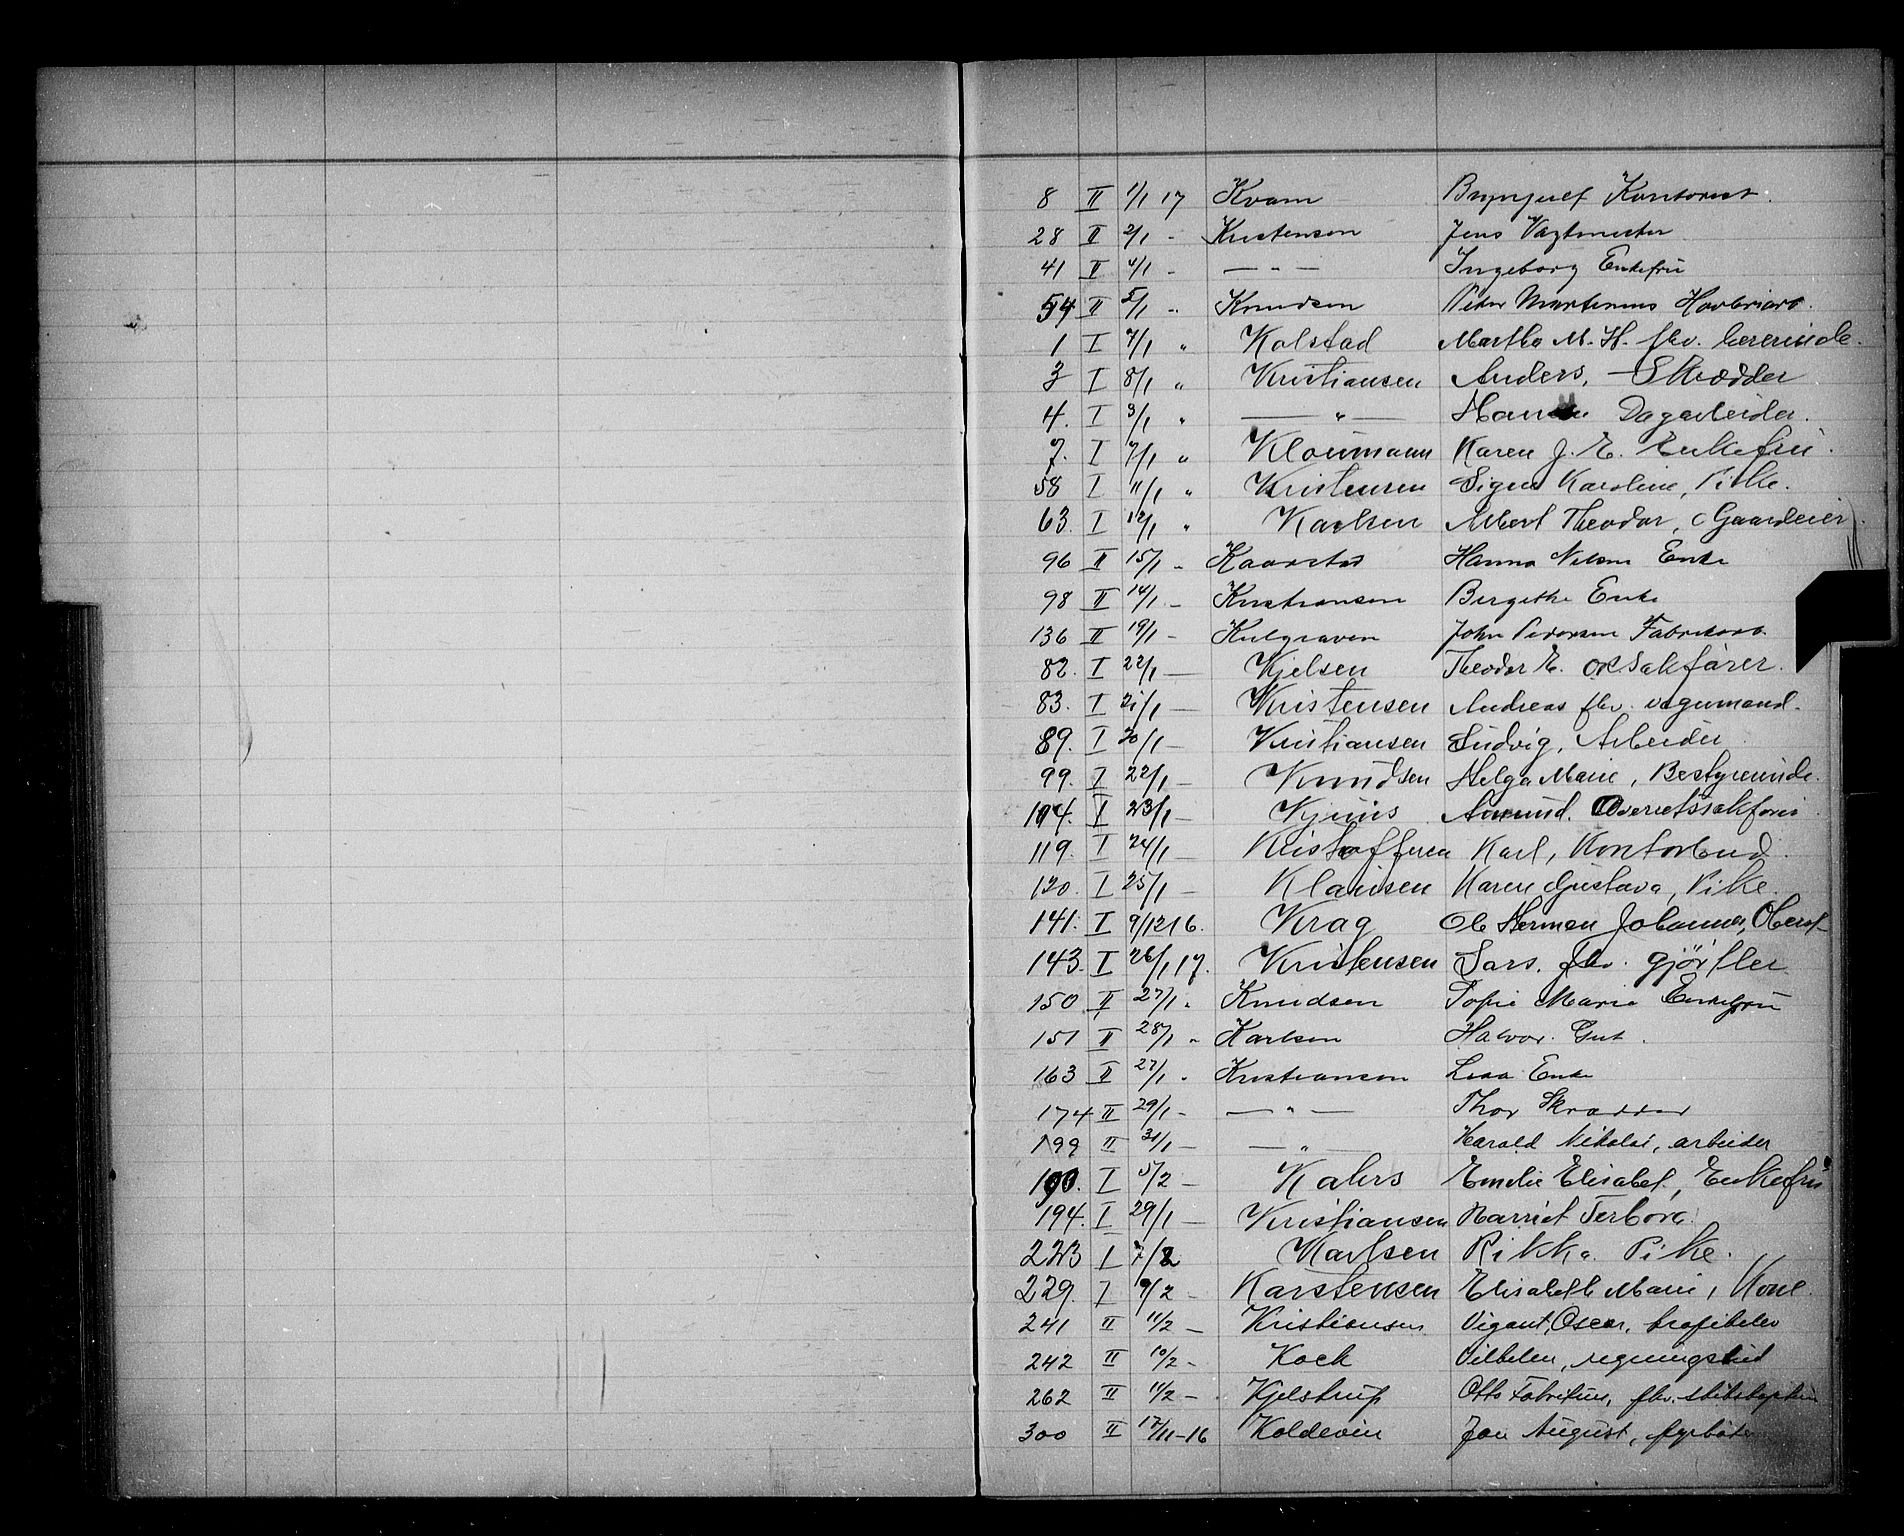 8 II 1/1 17 Kvam Brynjulf Kontorist.
28 II 2/1 - Kristensen Jens Vagtmester
41 II 4/1 - — " — Ingeborg Enkefru
54 II 5/1 - Knudsen Peter Martinius Havnearb.
1 I 7/1 " Kolstad Martha M. H. fhv. lærerinde.
3 I 8/1 " Kristiansen Anders, Skrædder
4. I 3/1 " — " — Dagarbeider.
7. I 7/1 " Kloumann Karen J. E. Enkefru.
58 I 11/1 " Kristensen Signe Karoline, Pike.
63. I 12/1 " Karlsen Albert Theodor, Gaardeier.
96 II 15/1 - Kaarstad Hanna Nilsen Enke
98 II 14/1 - Kristiansen Bergithe Enke
136 II 19/1 - Kulgraven John Pedersen Fabrikarb.
82. I 22/1 — Kjelsen Theodor E. o.r.sakfører.
83. I 21/1 — Kristensen Andreas fhv. vognmand.
89. I 20/1 — Kristiansen Ludvig, Arbeider
99. I 22/1 - Knudsen Helga Marie, Bestyrerinde.
104. I 23/1 - Amund. Overretssakfører
119. I 24/1 — Kristoffersen Karl, Kontorbud.
120. I 25/1 — Klausen Karen Gustava, Pike.
141. I 9/12 16. Krag Ole Herman Johannes, Oberst
143. I 26/1 17. Kristensen Lars. fhv. gjørtler
150 II 27/1 - Knudsen Sofie Marie Enkefru
151 II 28/1 - Karlsen Halvor. Gut.
163 II 27/1 - Kristiansen Lisa Enke
174 II 29/1 - — " — Thor Skrædder
199 II 31/1 - — " — Harald Nikolai, arbeider
190. I 5/2 - Kahrs Emilie Elisabet, Enkefru
194. I 29/1 — Kristiansen Harriet
223 I 7/2 Karlsen Rikka. Pike.
229. I 9/2 - Karstensen Elisabeth Marie, Kone.
241 II 11/2 - Kristiansen Vigant, Oscar, trafikelev
242 II 10/2 - Kock Vilhelm, regningsbud
262 II 11/2 - Kjelstrup Otto Fabritius, fhv. skibskaptein
300 II 17/11-16 Koldevin Jon August, fyrbøter